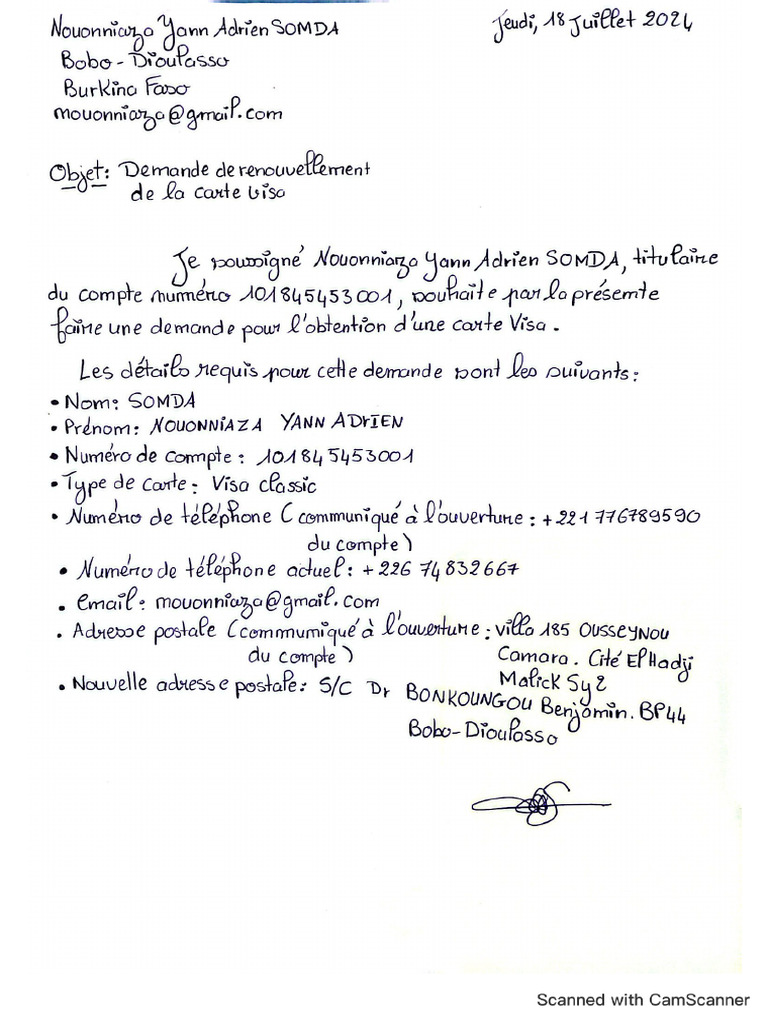 Nouonniaza Yann Adrien SOMDA
Jeudi, 18 Juillet 2024
Bobo-Dioulasso
Burkina Faso
mouonniaza@gmail.com
Objet: Demande de renouvellement
de la carte visa
Je soussigné Nouonniaza Yann Adrien SOMDA, titulaire
du compte numéro 101845453001, souhaite par la présente
faire une demande pour l'obtention d'une carte Visa.
Les détails requis pour cette demande sont les suivants:
• Nom: SOMDA
• Prénom: NOUONNIAZA YANN ADrIEN
• Numéro de compte: 101845453001
• Type de carte: Visa classic
• Numéro de téléphone (communiqué à l'ouverture: +221 776789590
du compte)
• Numéro de téléphone actuel: +226 74832667
• email: mouonniaza@gmail.com
• Adresse postale (communiqué à l'ouverture: villa 185 OUSSEYNOU
du compte) Camara. Cité El Hadji
Malick Sy 2
• Nouvelle adresse postale: S/C Dr BONKOUNGOU Benjamin. BP44
Bobo-Dioulasso
Scanned with CamScanner